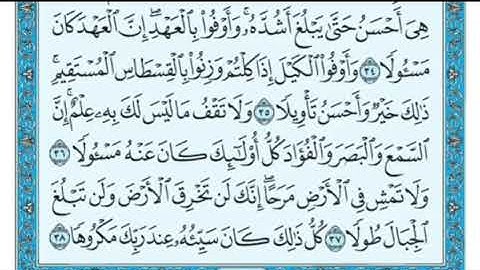 هِيَ أَحْسَنُ حَتَّىٰ يَبْلُغَ أَشُدَّهُۥ ۚ وَأَوْفُوا۟ بِٱلْعَهْدِ ۖ إِنَّ ٱلْعَهْدَ كَانَ
مَسْـُٔولًا ٣٤ وَأَوْفُوا۟ ٱلْكَيْلَ إِذَا كِلْتُمْ وَزِنُوا۟ بِٱلْقِسْطَاسِ ٱلْمُسْتَقِيمِ ۚ
ذَٰلِكَ خَيْرٌ وَأَحْسَنُ تَأْوِيلًا ٣٥ وَلَا تَقْفُ مَا لَيْسَ لَكَ بِهِۦ عِلْمٌ ۚ إِنَّ
ٱلسَّمْعَ وَٱلْبَصَرَ وَٱلْفُؤَادَ كُلُّ أُو۟لَٰٓئِكَ كَانَ عَنْهُ مَسْـُٔولًا ٣٦
وَلَا تَمْشِ فِى ٱلْأَرْضِ مَرَحًا ۖ إِنَّكَ لَن تَخْرِقَ ٱلْأَرْضَ وَلَن تَبْلُغَ
ٱلْجِبَالَ طُولًا ٣٧ كُلُّ ذَٰلِكَ كَانَ سَيِّئُهُۥ عِندَ رَبِّكَ مَكْرُوهًا ٣٨